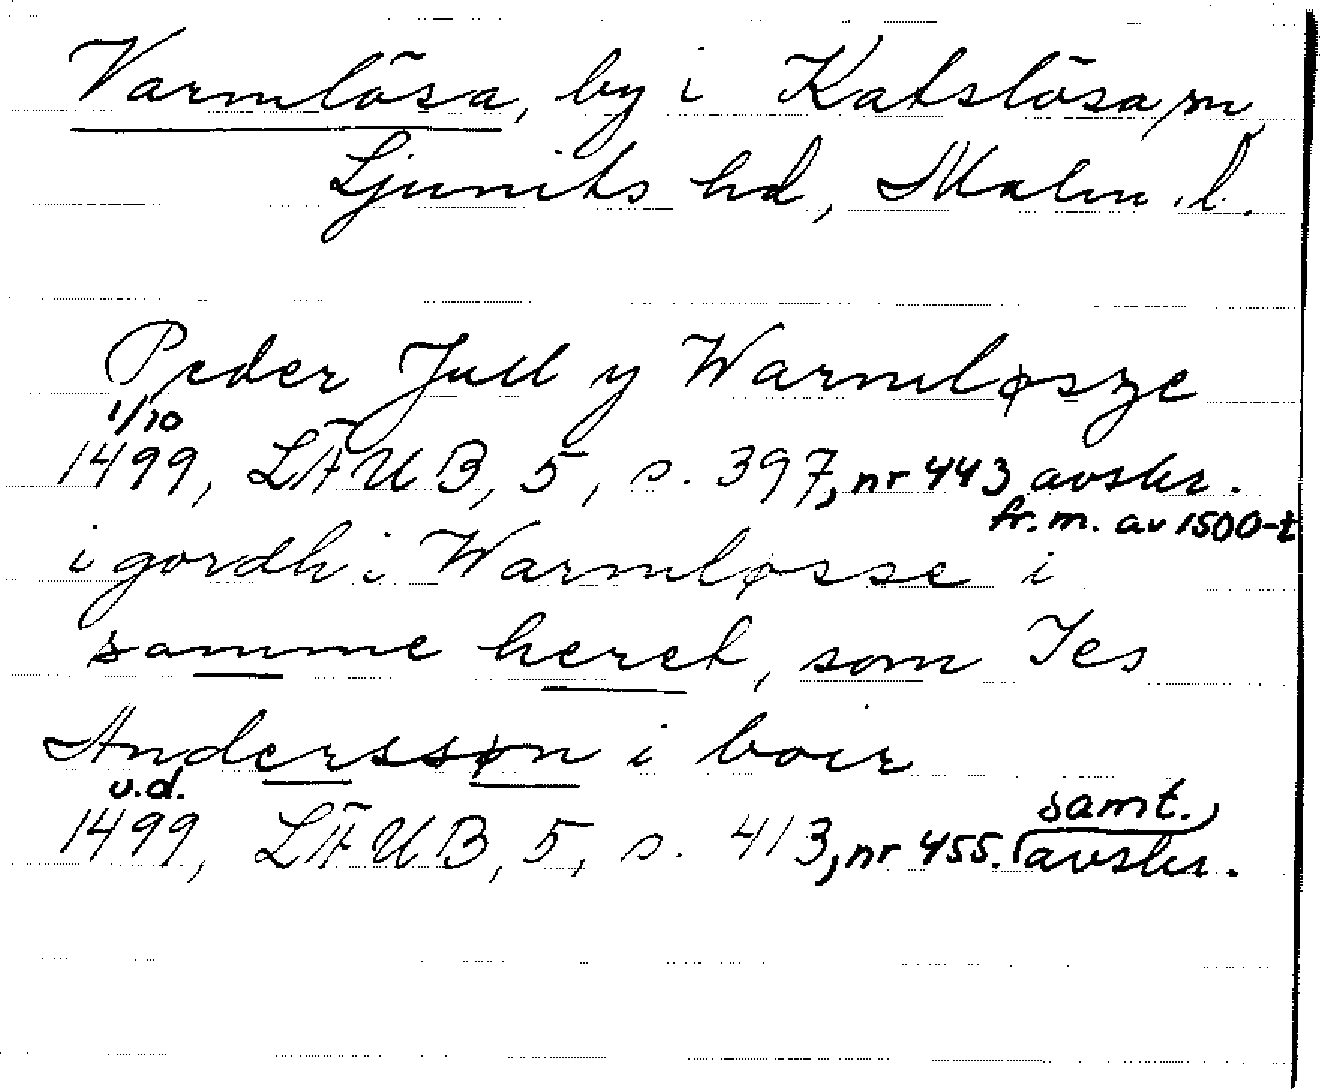 Varmlösa, by i Katslösa sn,
Ljunits hd, Malm. l.
Peder Jull y Warmløsze
1/10
1499, LÄUB, 5, s. 397, nr 443 avskr.
fr. m. av 1500-t
i gordh i Warmløsse i
samme heret, som Jes
Anderssøn i boir
u.d.
1499, LÄUB, 5, s. 413, nr 455. samt.
avskr.